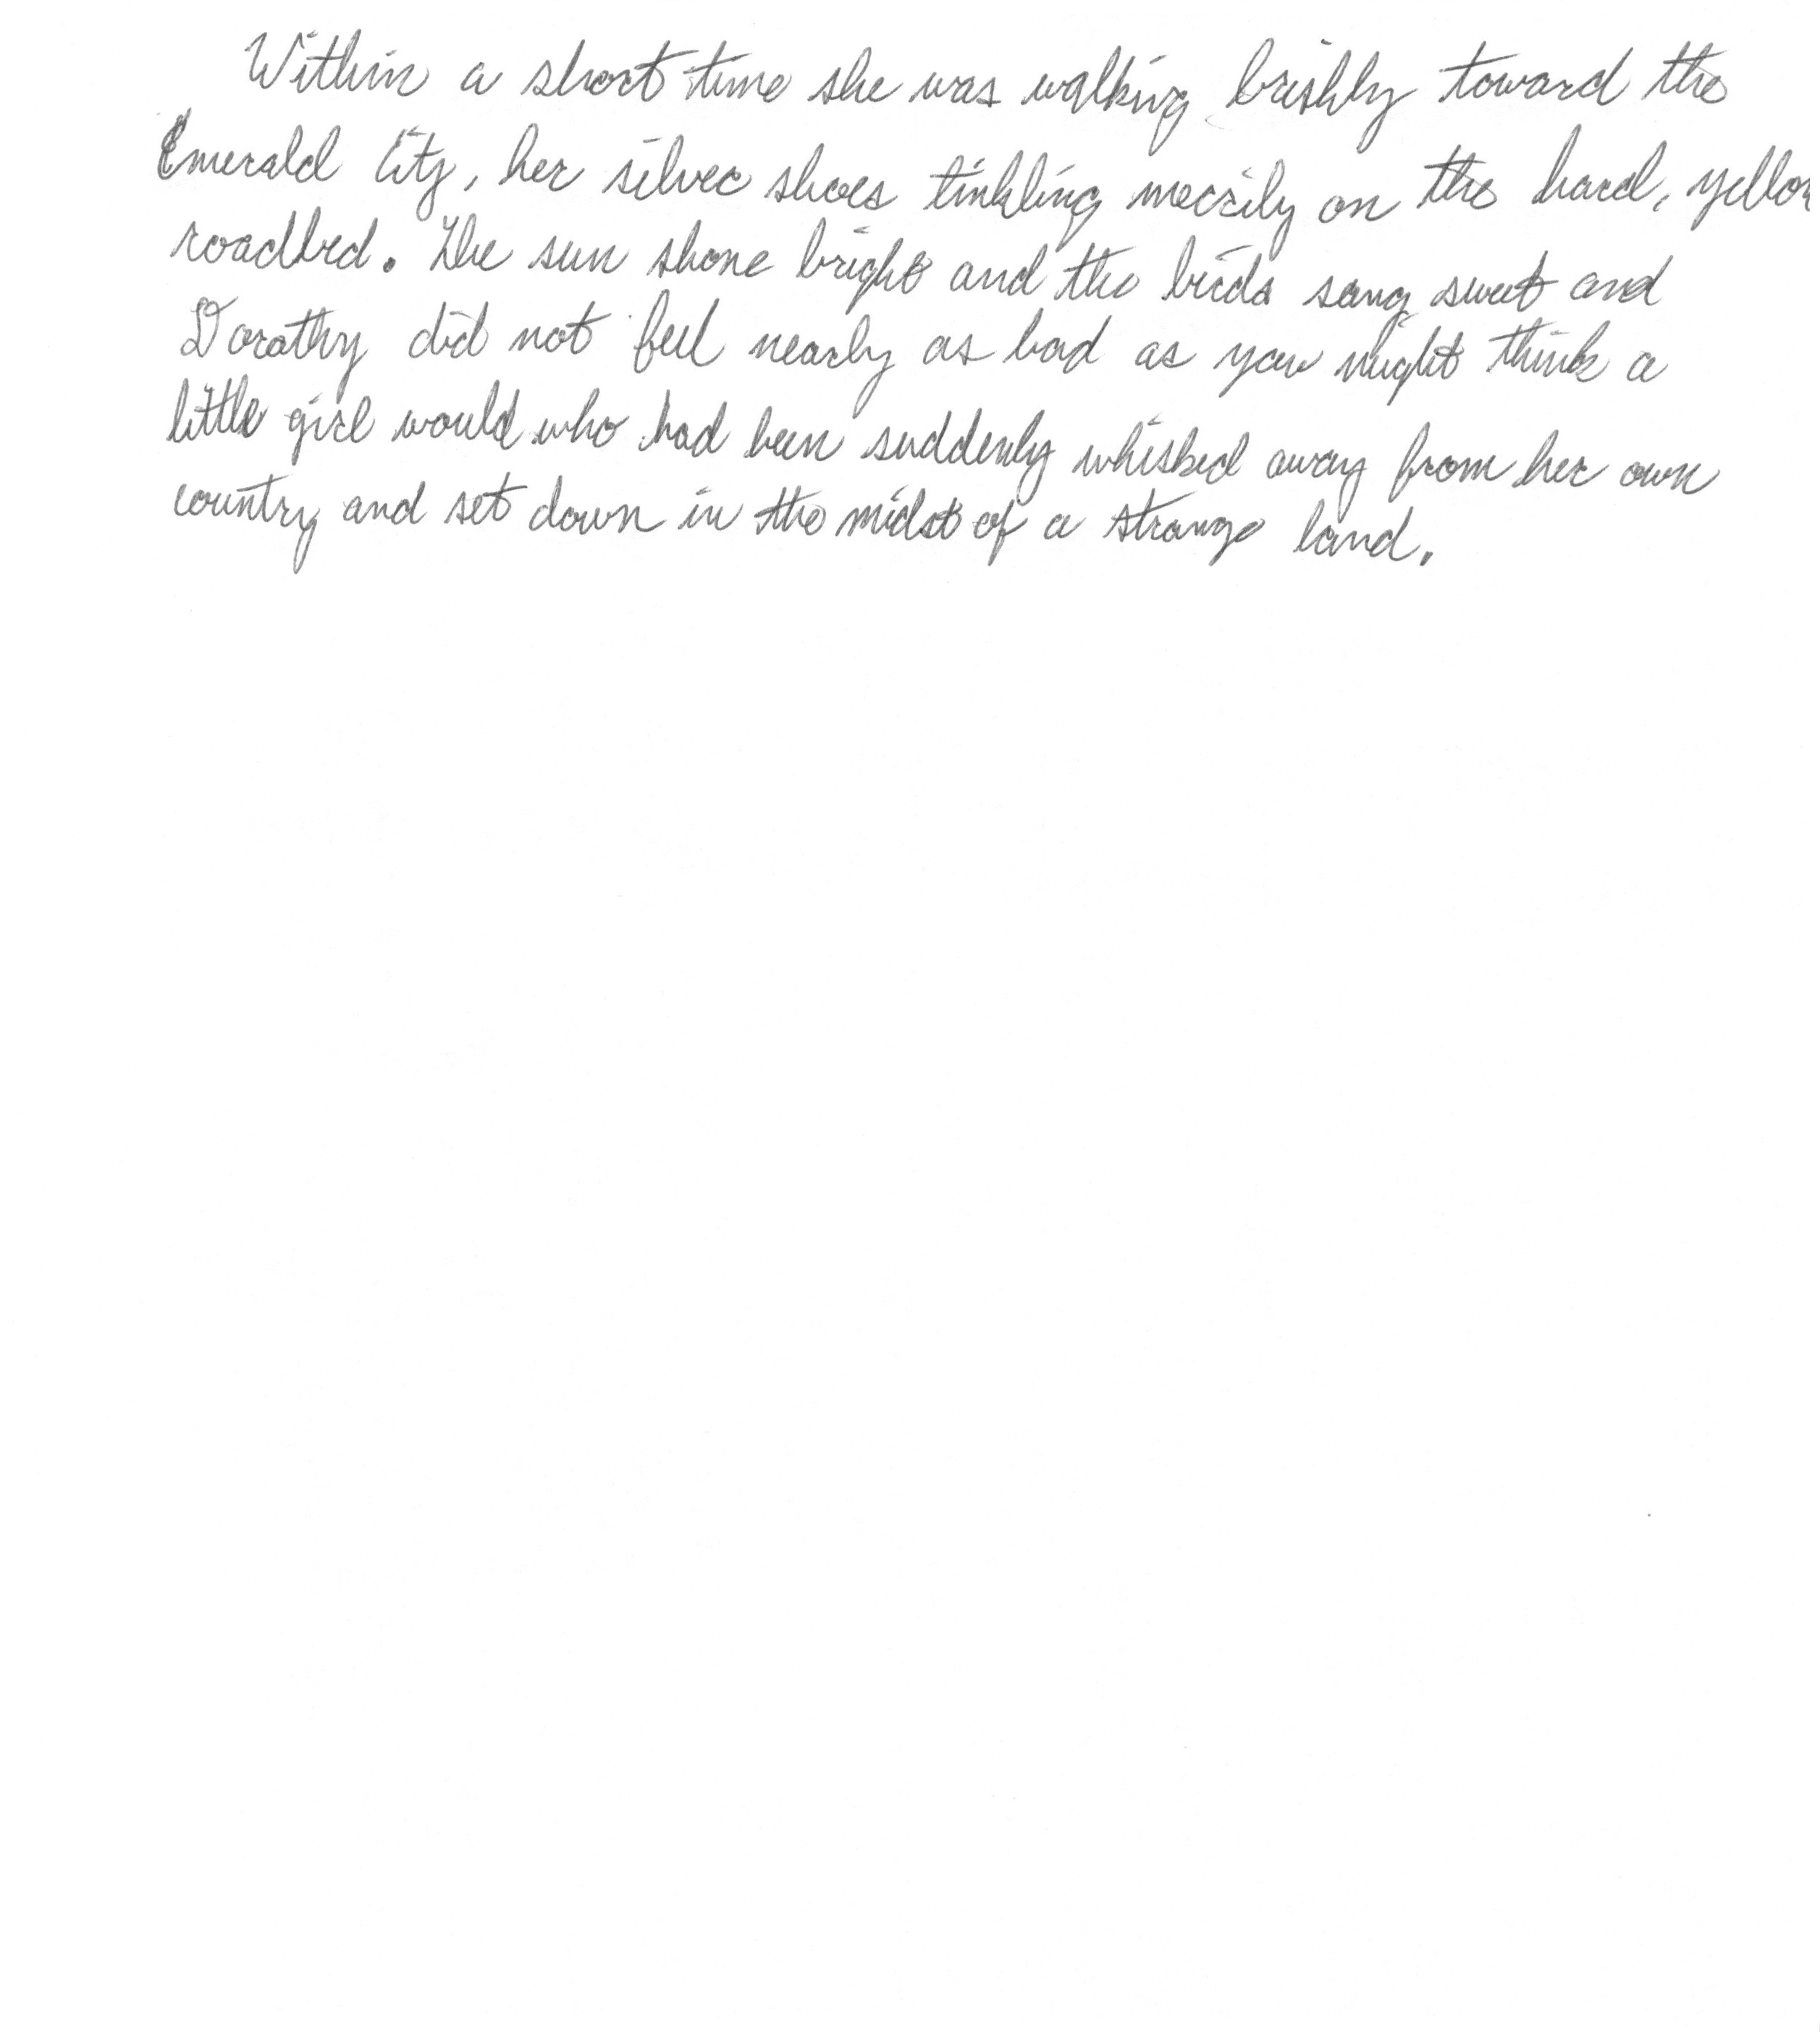 Within a short time she was walking briskly toward the
Emerald City, her silver shoes tinkling merrily on the hard, yellow
roadbed. The sun shone bright and the birds sang sweet and
Dorathy did not feel nearly as bad as you might think a
little girl would who had been suddenly whisked away from her own
country and set down in the midst of a strange land.